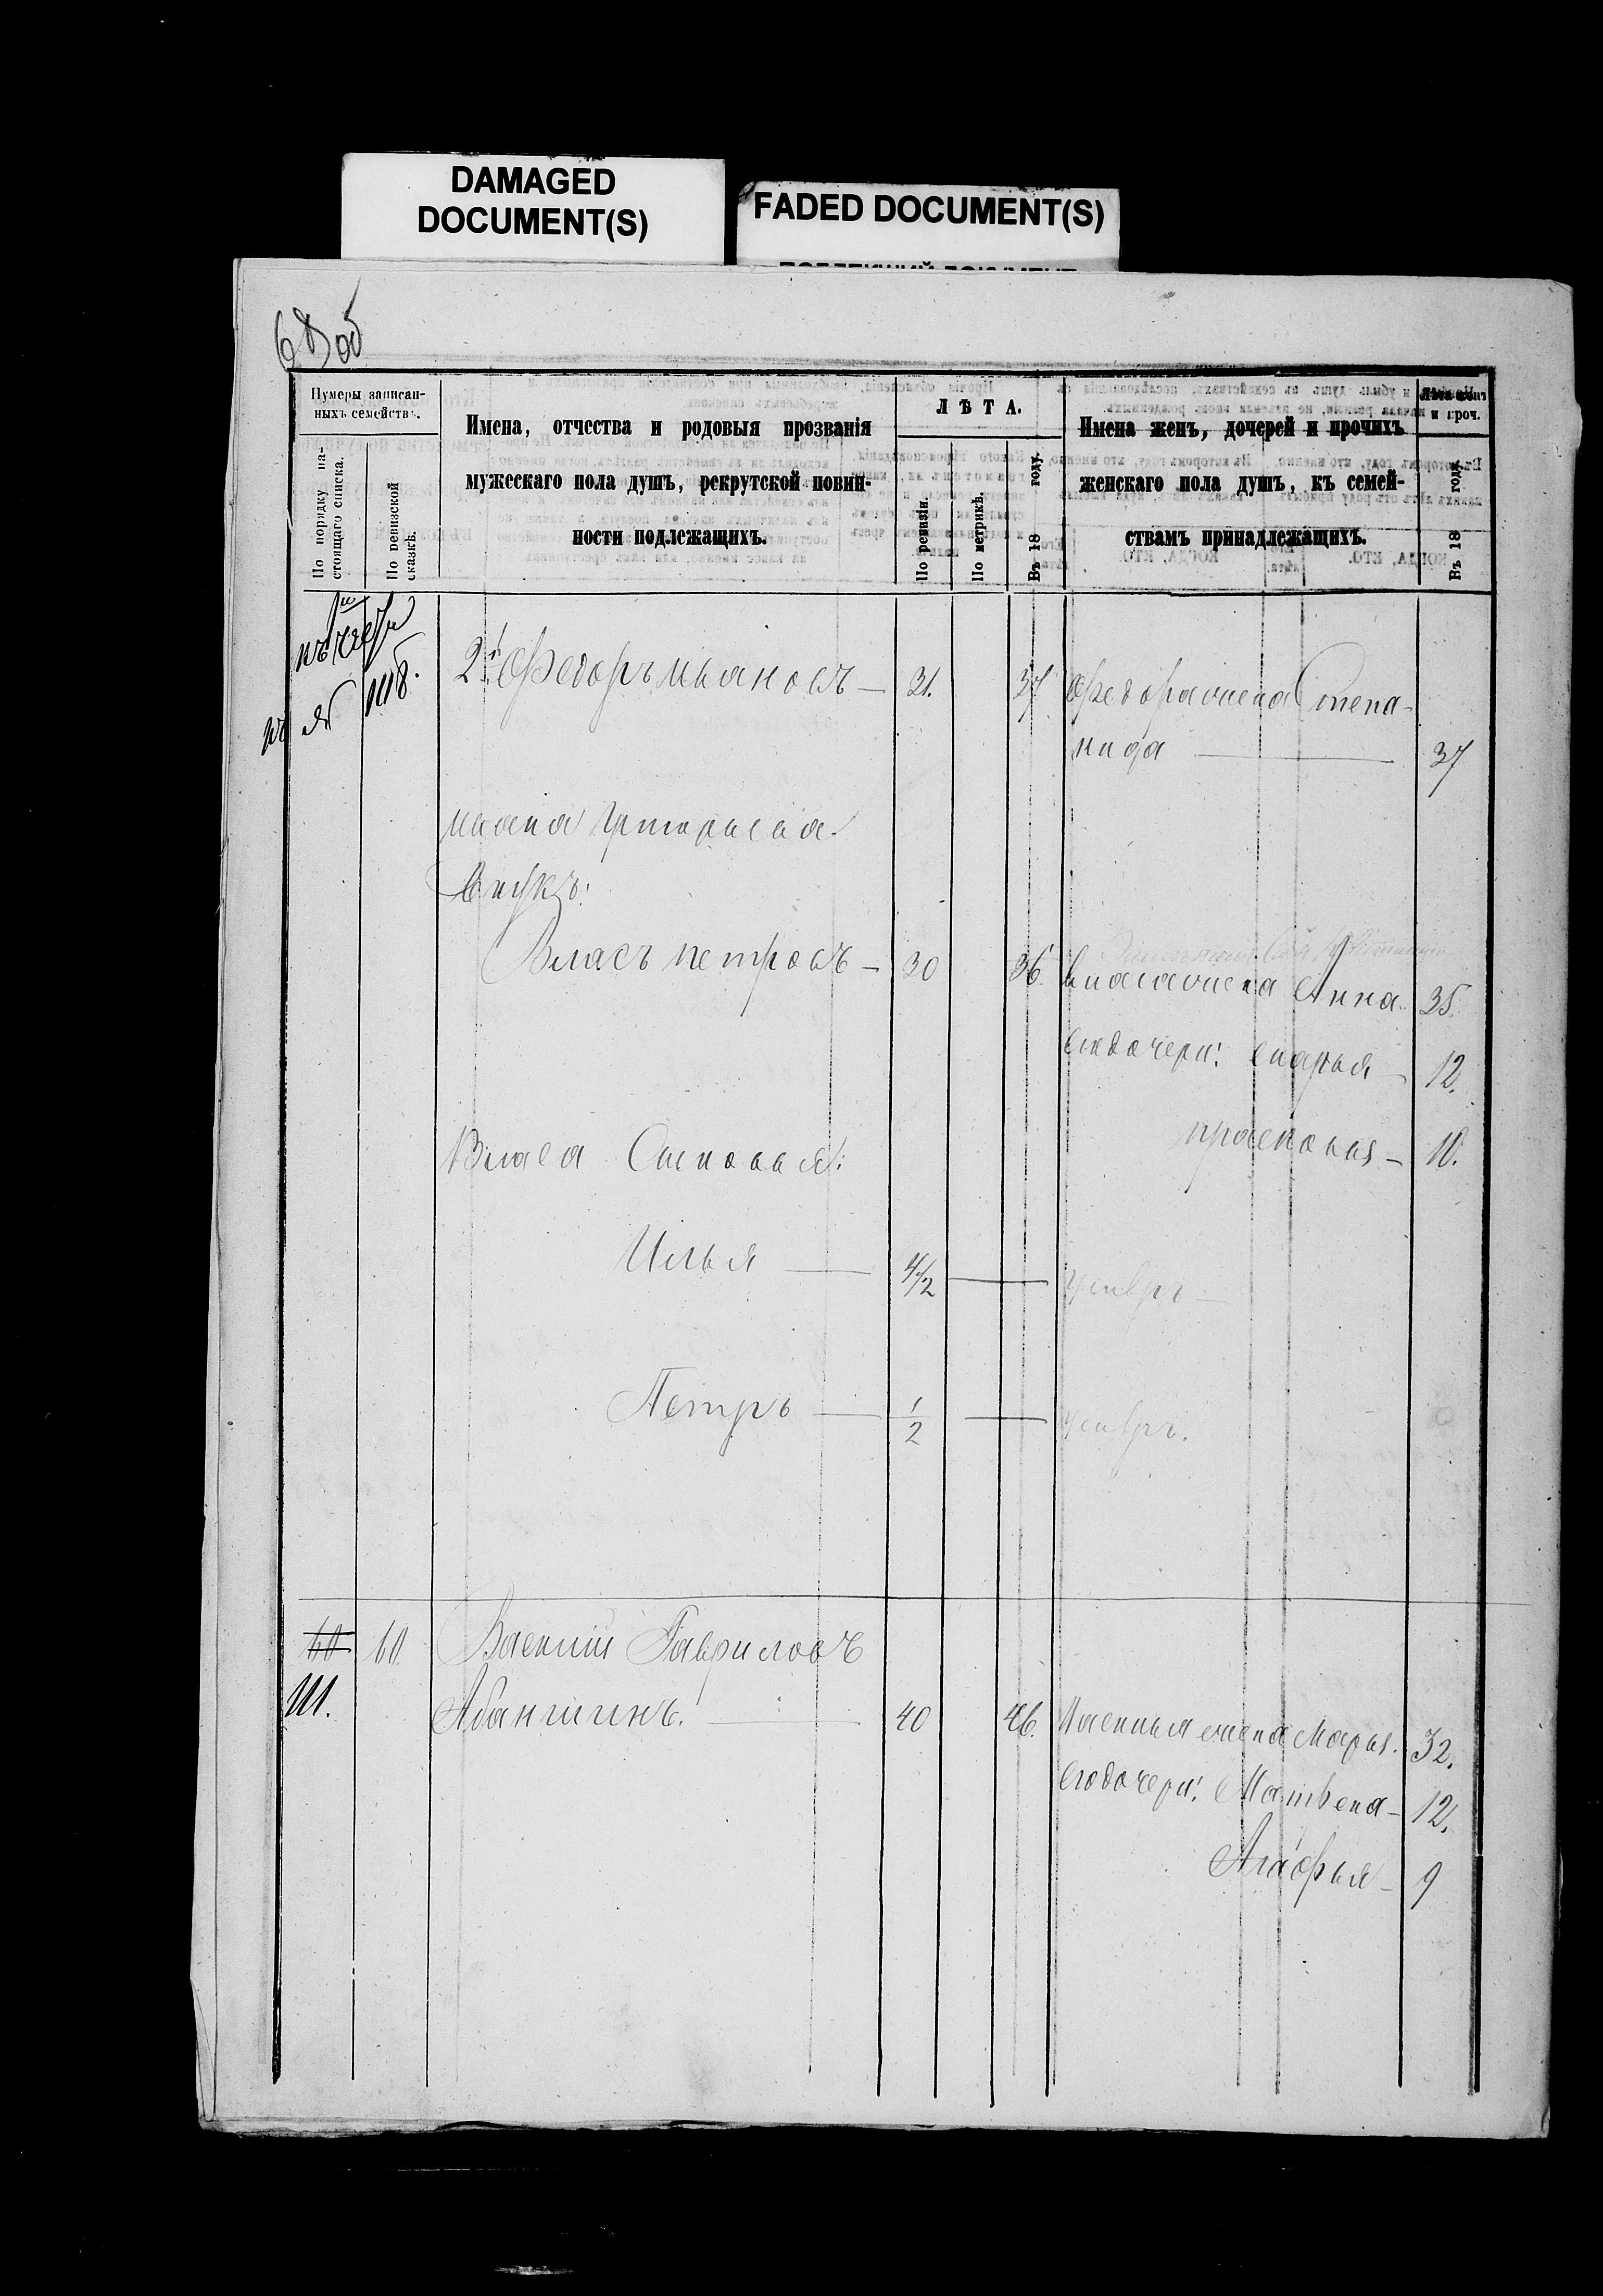 DAMAGED
DOCUMENT(S)
FADED DOCUMENT(S)
68 об
Нумеры записан-
ныхъ семействъ.
По порядку на-
стоящаго списка.
По ревизской
сказкѣ.
Имена, отчества и родовыя прозванія
мужескаго пола душъ, рекрутской повин-
ности подлежащихъ.
ЛѢТА.
По ревизіи.
По метрикѣ.
Въ 18 году.
Имена женъ, дочерей и прочихъ
женскаго пола душъ, къ семей-
ствамъ принадлежащихъ.
и проч.
Въ 18 году.
2й Федоръ Ивановъ — 31. 37 Федора жена Степа-
нида — 37
Ивана Григорьева
внукъ:
Власъ Петровъ — 30 36. Власа жена Анна 35.
Его дочери: Марья — 12.
Прасковья — 10.
Власа Сыновья:
Илья — 4/2 — умеръ —
Петръ — 1/2 — умеръ.
60 60 Василій Гавриловъ
111. Абаншинъ. — 40 46. Василья жена Марья. 32.
Его дочери: Матвена — 12.
Агафья — 9